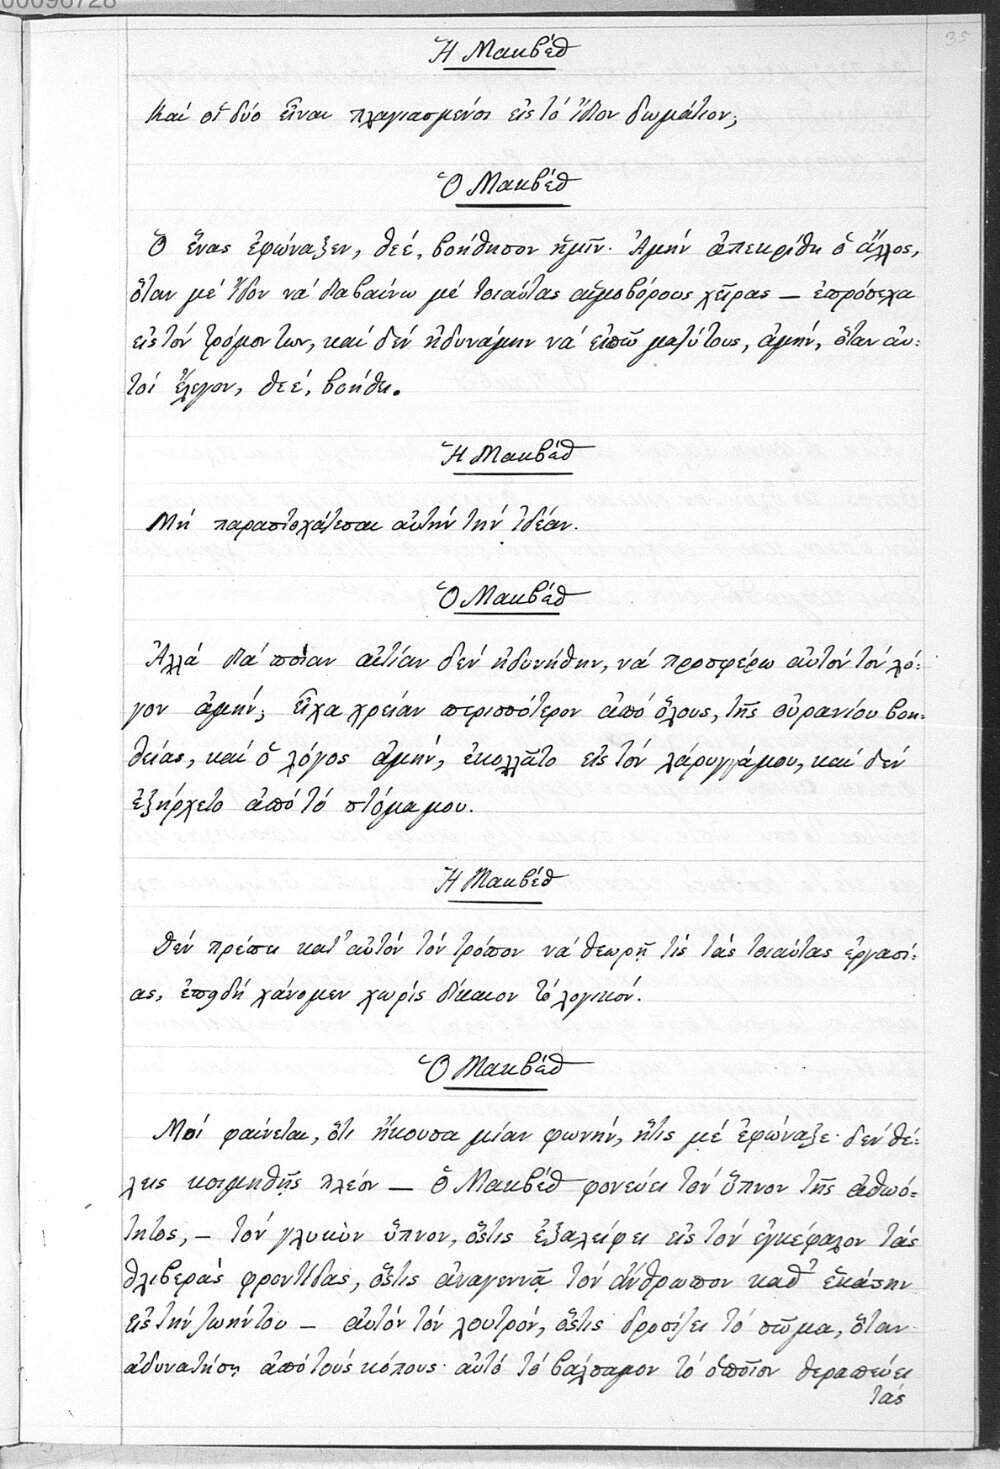 00096728
35
Ἡ Μακβέθ
Καί οἱ δύο εἶναι πλαγιασμένοι εἰς τό ἴδιον δωμάτιον;
Ὁ Μακβέθ
Ὁ ἕνας ἐφώναξεν, θεέ, βοήθησον ἡμῖν· Ἀμήν ἀπεκρίθη ὁ ἄλλος,
ὅταν μέ ἴδον νά διαβαίνω μέ τοιαύτας αἱμοβόρους χεῖρας – ἐπρόσεχα
εἰς τόν τρόμον των, καί δέν ἠδυνάμην νά εἰπῶ μαζύ τους, ἀμήν, ὅταν αὐ-
τοί ἔλεγον, θεέ, βοήθει.
Ἡ Μακβέθ
Μή παραστοχάζεσαι αὐτήν τήν ἰδέαν.
Ὁ Μακβέθ
Ἀλλά διά ποίαν αἰτίαν δέν ἠδυνήθην, νά προσφέρω αὐτόν τόν λό-
γον ἀμήν; εἶχα χρείαν περισσότερον ἀπό ὅλους, τῆς οὐρανίου βοη-
θείας, καί ὁ λόγος ἀμήν, ἐκολλᾶτο εἰς τόν λάρυγγά μου, καί δέν
ἐξήρχετο ἀπό τό στόμα μου.
Ἡ Μακβέθ
Δέν πρέπει κατ' αὐτόν τόν τρόπον νά θεωρῇ τίς τάς τοιαύτας ἐργασί-
ας, ἐπειδή χάνομεν χωρίς δίκαιον τό λογικόν.
Ὁ Μακβέθ
Μοί φαίνεται, ὅτι ἤκουσα μίαν φωνήν, ἥτις μέ ἐφώναξε· δέν θέ-
λεις κοιμηθῇς πλέον – ὁ Μακβέθ φονεύει τόν ὕπνον τῆς ἀθωό-
τητος, – τόν γλυκύν ὕπνον, ὅστις ἐξαλείφει εἰς τόν ἐγκέφαλον τάς
θλιβεράς φροντίδας, ὅστις ἀναγεννᾷ τόν ἄνθρωπον καθ' ἑκάστην
εἰς τήν ζωήν του – αὐτόν τόν λουτρόν, ὅστις δροσίζει τό σῶμα, ὅταν
ἀδυνατήσῃ ἀπό τούς κόπους· αὐτό τό βάλσαμον τό ὁποῖον θεραπεύει
τάς